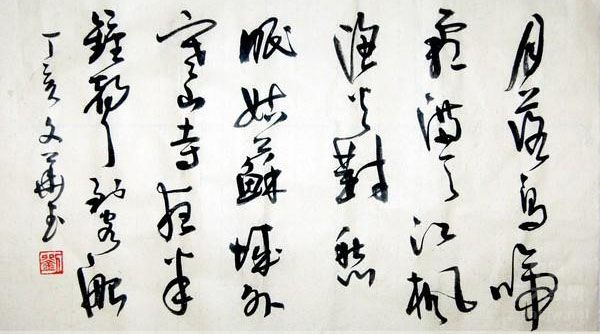 月落烏啼
霜滿天江楓
漁火對愁
眠姑蘇城外
寒山寺夜半
鐘聲到客船
丁亥文華书
劉